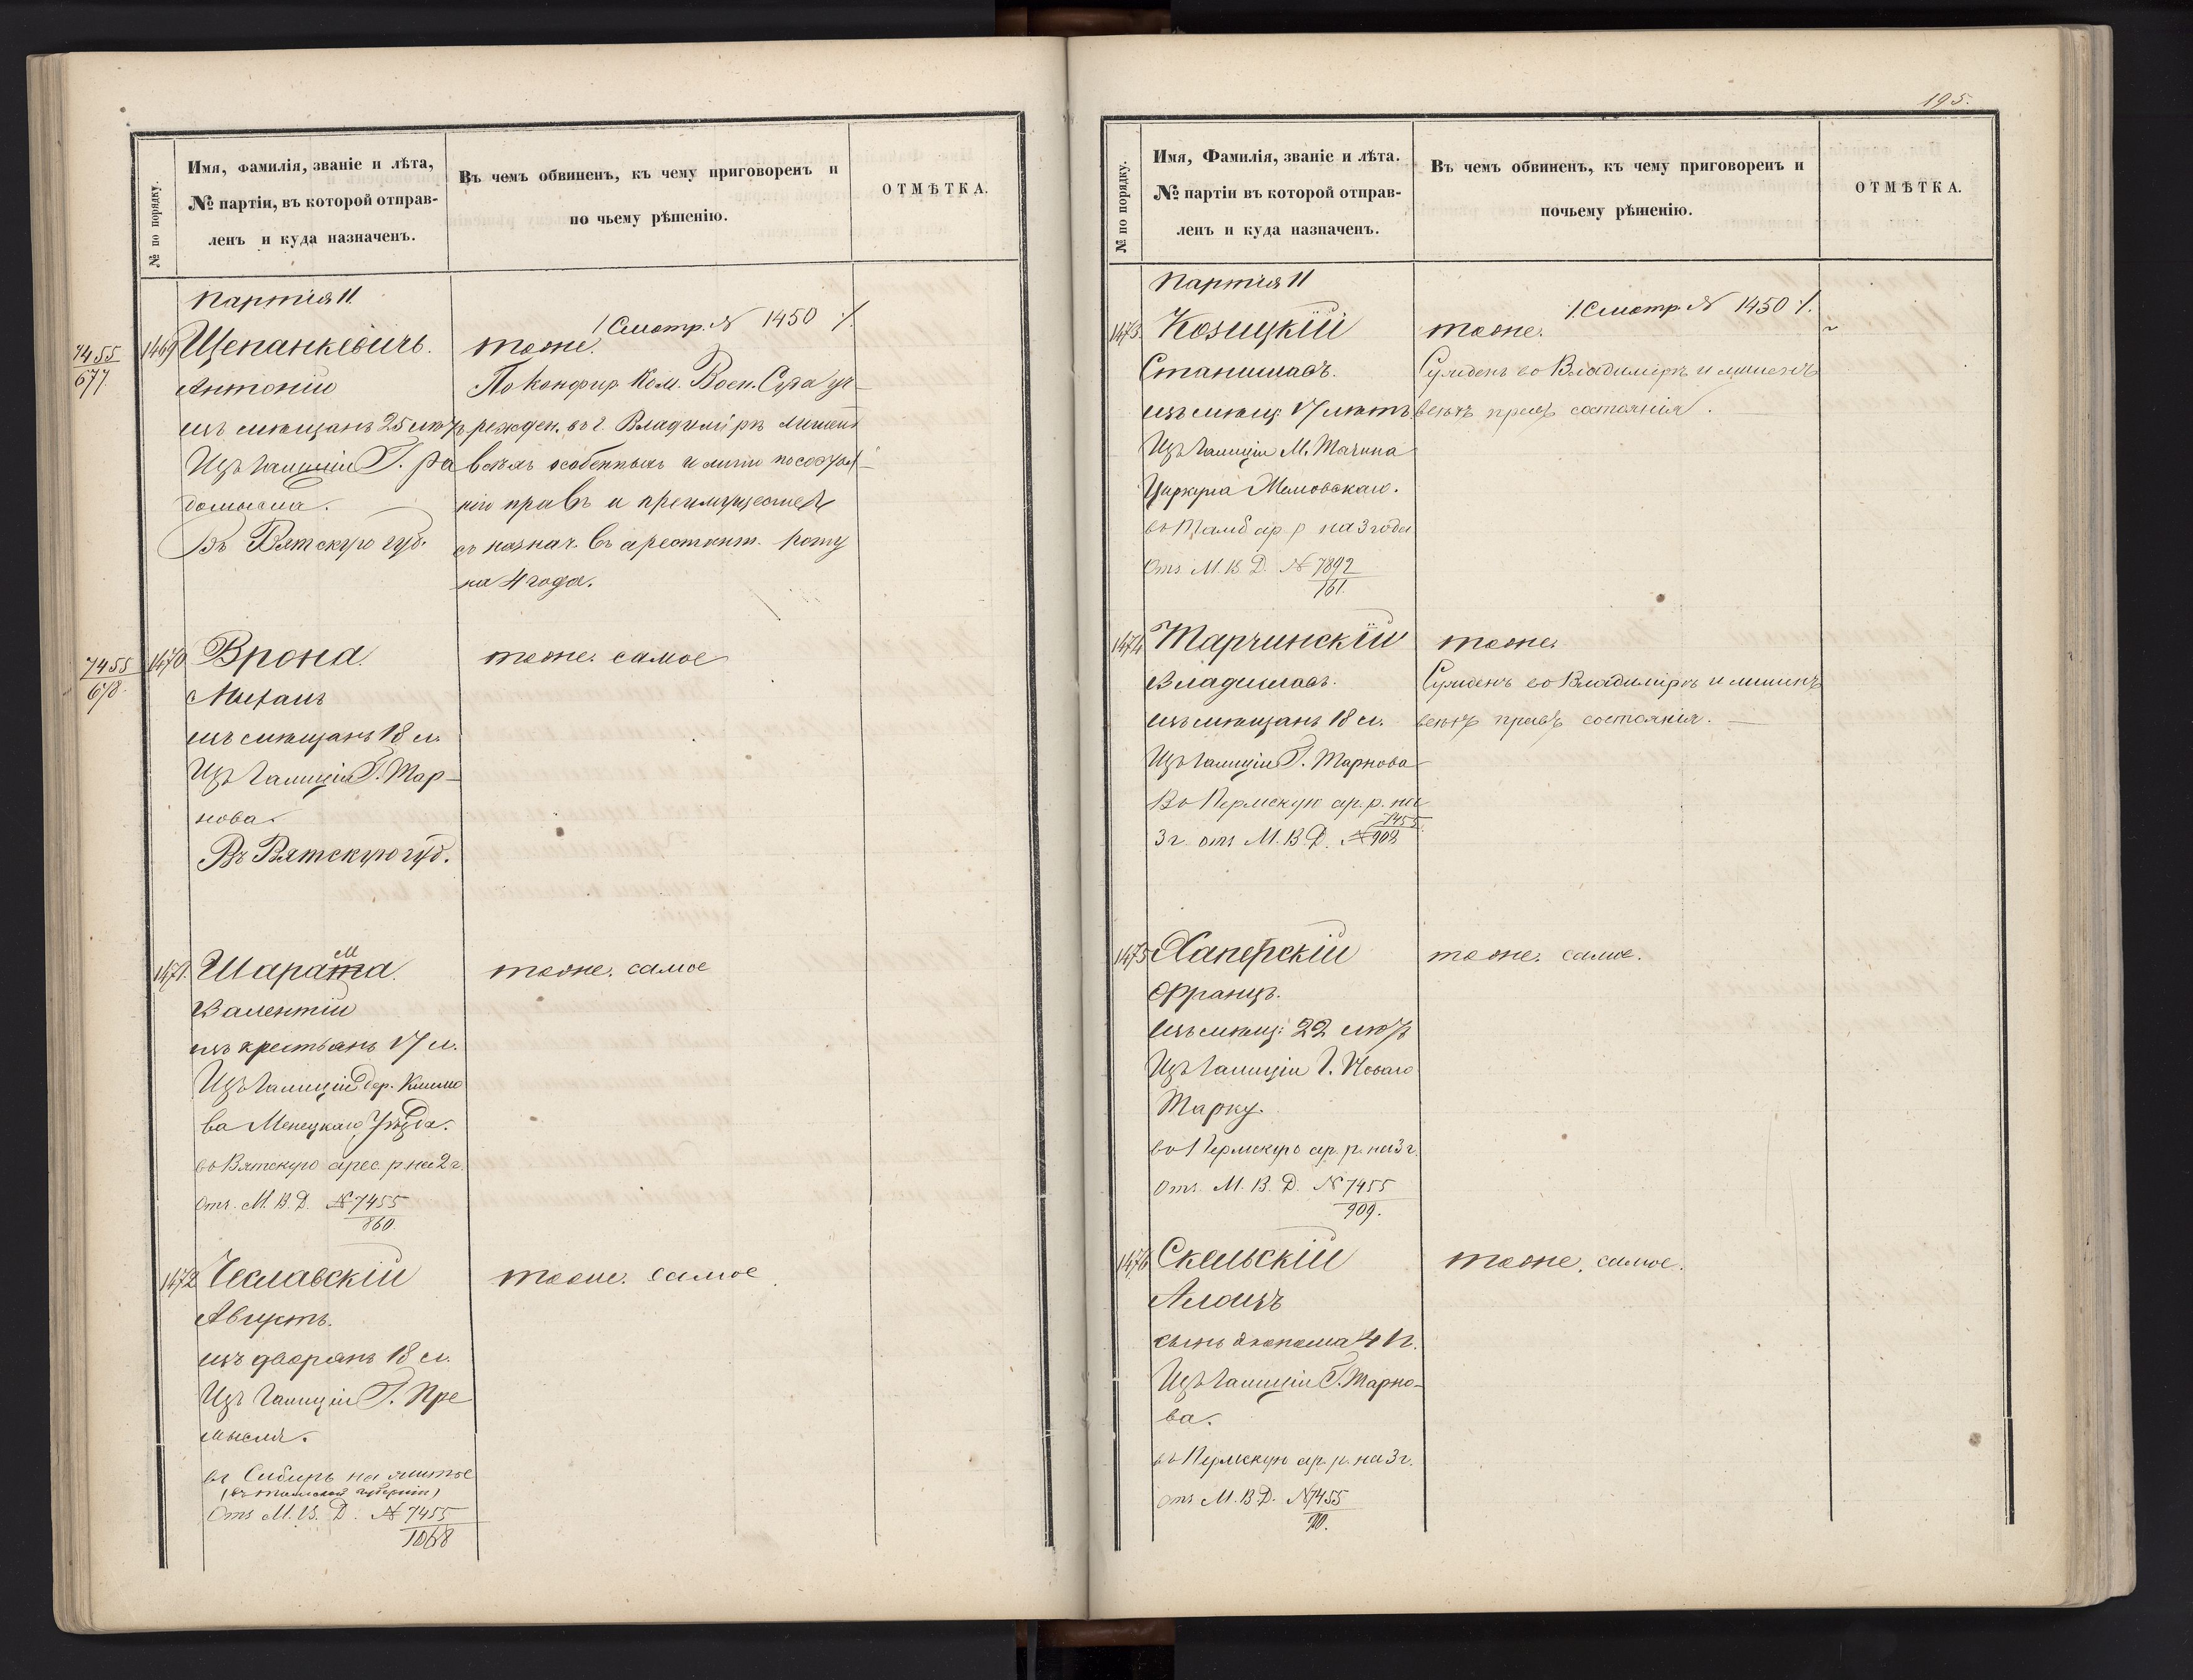 195.
№ по порядку.
Имя, фамилія, званіе и лѣта,
№ партіи, въ которой отправ-
ленъ и куда назначенъ.
Въ чемъ обвиненъ, къ чему приговоренъ и
по чьему рѣшенію.
ОТМѢТКА.
Партія 11.
/ Смотр. № 1450 /.
7455
677
1469 Щепанкевичъ.
тоже.
Антоній
По Конфир. Ком. Воен. Суда уч-
изъ мѣщанъ 25 лѣтъ
режден. въ г. Владимірѣ лишенъ
Изъ Галиціи Г. Ра
всѣхъ особенныхъ и лично по состоя-
домысла.
нію правъ и преимуществъ
Въ Вятскую губ.
съ назнач. въ арестант. роту
на 4 года.
7455
678
1470 Врона.
тоже. самое
Михаилъ
изъ мѣщанъ 18 л.
Изъ Галиціи Г. Тар-
нова.
Въ Вятскую губ.
м
1471. Шарата.
тоже. самое
Валентій
изъ крестьянъ 17 л.
Изъ Галиціи Дер. Климо
ва Менецкаго Уѣзда.
въ Вятскую арес. р. на 2 г.
Отъ М. В. Д. № 7455
860.
1472 Чеславскій
тоже. самое
Августъ.
изъ дворянъ 18 л.
Изъ Галиціи Г. Пре
мысля.
въ Сибирь на житье
(въ Томской губерніи)
Отъ М. В. Д. № 7455
1068
№ по порядку.
Имя, Фамилія, званіе и лѣта.
№ партіи въ которой отправ-
ленъ и куда назначенъ.
Въ чемъ обвиненъ, къ чему приговоренъ и
почьему рѣшенію.
ОТМѢТКА.
Партія 11
/. Смотр. № 1450 /.
1473. Козицкій
тоже.
Станиславъ.
Сужденъ во Владимірѣ и лишенъ
изъ мѣщ: 17 лѣтъ.
всѣхъ правъ состоянія.
Изъ Галиціи М. Тачина
Циркула Жемовскаго.
въ Тамб ар. р на 3 года
Отъ М. В. Д. № 7892
161.
1474 Тарчинскій
тоже.
Владиславъ.
Сужденъ во Владимірѣ и лишенъ
изъ мѣщанъ 18 л.
всѣхъ правъ состоянія.
Изъ Галиціи Г. Тарнова
Въ Пермскую ар. р. на
3 г. отъ М. В. Д. № 7455
908
1475 Хаперскій
тоже. самое.
Францъ.
изъ мѣщ: 22 лѣтъ
Изъ Галиціи Г. Новаго
Тарку.
въ Пермскую ар. р. на 3 г.
Отъ М. В. Д. № 7455
909.
1476 Скальскій
тоже. самое.
Алоизъ
сынъ эконома 41 г.
Изъ Галиціи Г. Тарно-
ва.
въ Пермскую ар. р. на 3 г.
отъ М. В. Д. № 7455
910.